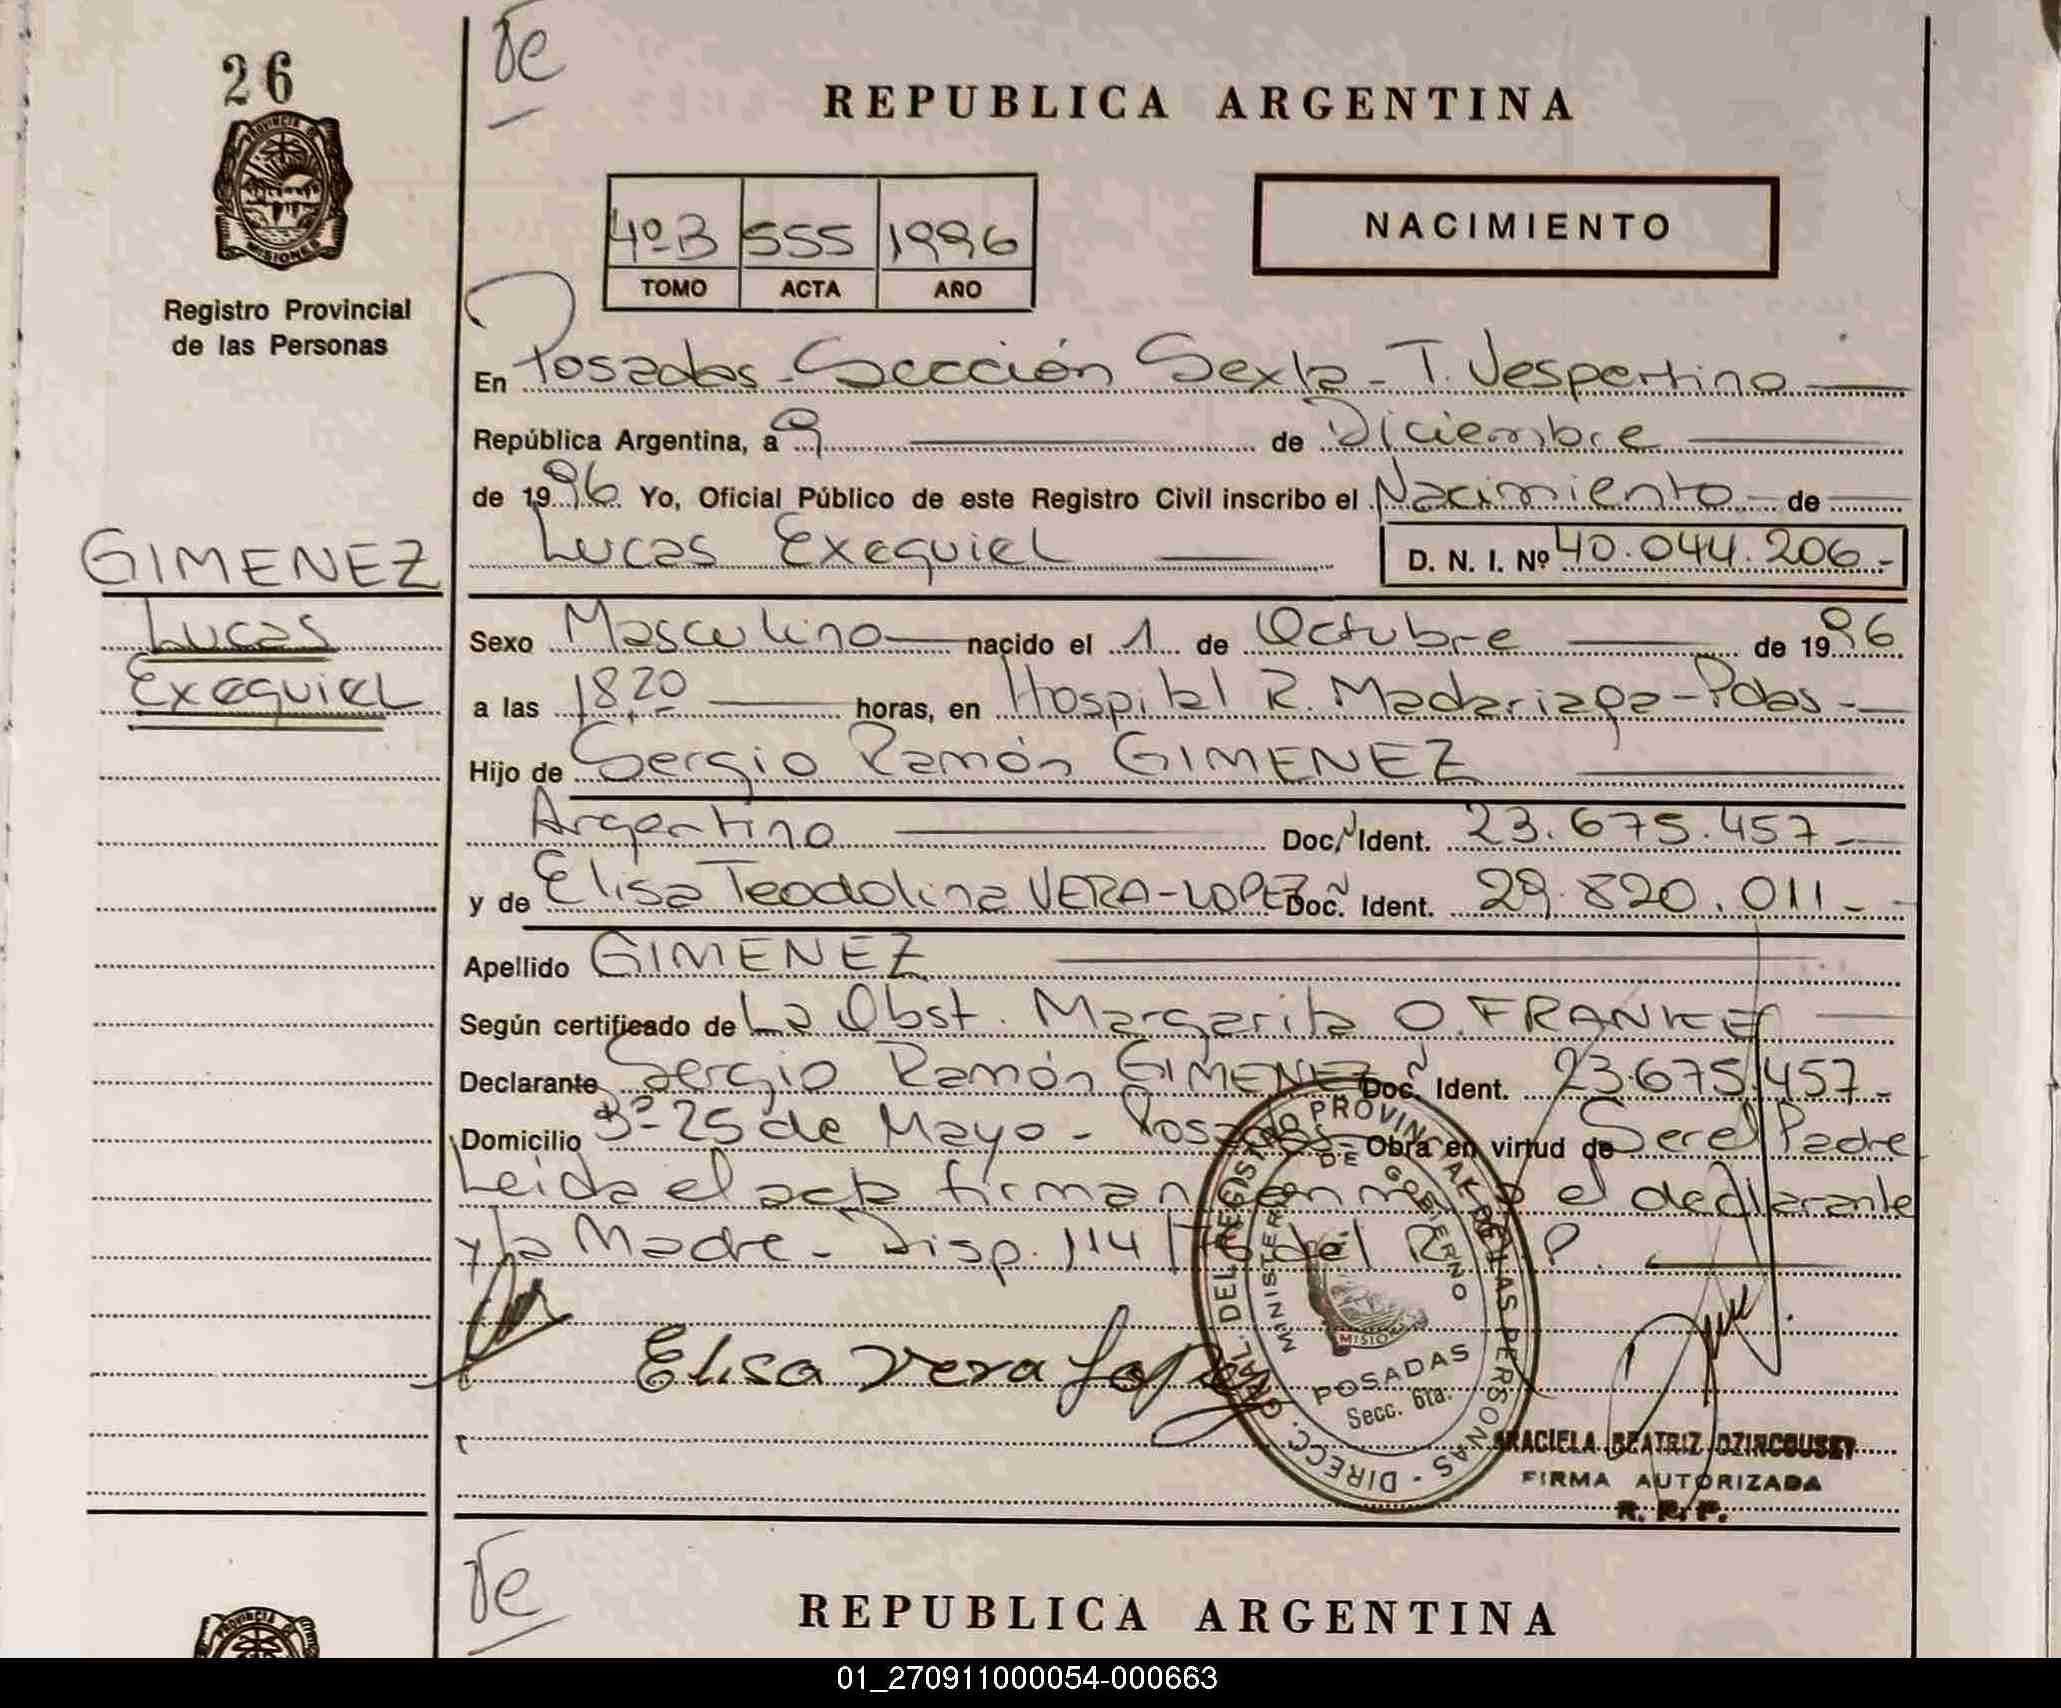 26
Te
REPUBLICA ARGENTINA
PROVINCIA D
MISIONES
Registro Provincial
de las Personas
4º B 555 1996
TOMO ACTA AÑO
NACIMIENTO
En Posadas - Sección Sexta - T. Vespertino
República Argentina, a 9 de Diciembre
de 1996 Yo, Oficial Público de este Registro Civil inscribo el Nacimiento de
Lucas Exequiel D. N. I. Nº 40.044.206.-
GIMENEZ
Lucas
Exequiel
Sexo Masculino nacido el 1 de Octubre de 1996
a las 18,20 horas, en Hospital R. Madariaga - Pdas -
Hijo de Sergio Ramón GIMENEZ
Argentino Doc. Ident. 23.675.457 -
y de Elisa Teodolina VERA-LOPEZ Doc. Ident. 29.820.011 -
Apellido GIMENEZ
Según certificado de La Obst. Margarita O. FRANKE
Declarante Sergio Ramón GIMENEZ Doc. Ident. 23.675.457 -
Domicilio Bº 25 de Mayo - Posadas - Obra en virtud de Ser el Padre
Leida el acta firman conmigo el declarante
y la Madre - Disp. 114 del R. P.
Elisa Vera Lopez
DIRECC. GRAL. DEL REGISTRO PROVINCIAL DE LAS PERSONAS -
MINISTERIO DE GOBIERNO
MISIO
POSADAS
Secc. 6ta.
GRACIELA BEATRIZ DZIRCOUSEY
FIRMA AUTORIZADA
R. P. P.
Te
REPUBLICA ARGENTINA
PROVINCIA
01_270911000054-000663